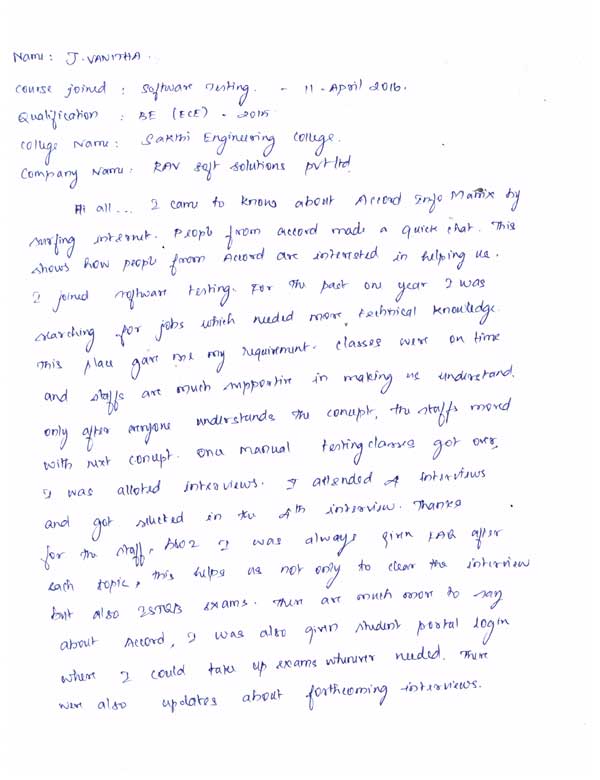 Name : J. VANITHA .
course joined : Software Testing. - 11 - April 2016.
Qualification : BE (ECE) - 2015
college Name : Sakthi Engineering college.
Company Name : RAV Soft Solutions pvt ltd
Hi all... I came to know about Accord Info Matrix by
surfing internet. People from accord made a quick chat. This
shows how people from Accord are interested in helping us.
I joined software testing. For the past one year I was
searching for jobs which needed more technical knowledge.
This place gave me my requirement. classes were on time
and staffs are much supportive in making us understand.
only after everyone understands the concept, the staffs moved
with next concept. Once manual testing classes got over,
I was alloted interviews. I attended 4 interviews
and got selected in the 4th interview. Thanks
for the staff. I was always given FAQ after
each topic, this helps us not only to clear the interview
but also ISTQB exams. There are much more to say
about Accord, I was also given student portal login
where I could take up exams whenever needed. There
were also updates about forthcoming interviews.